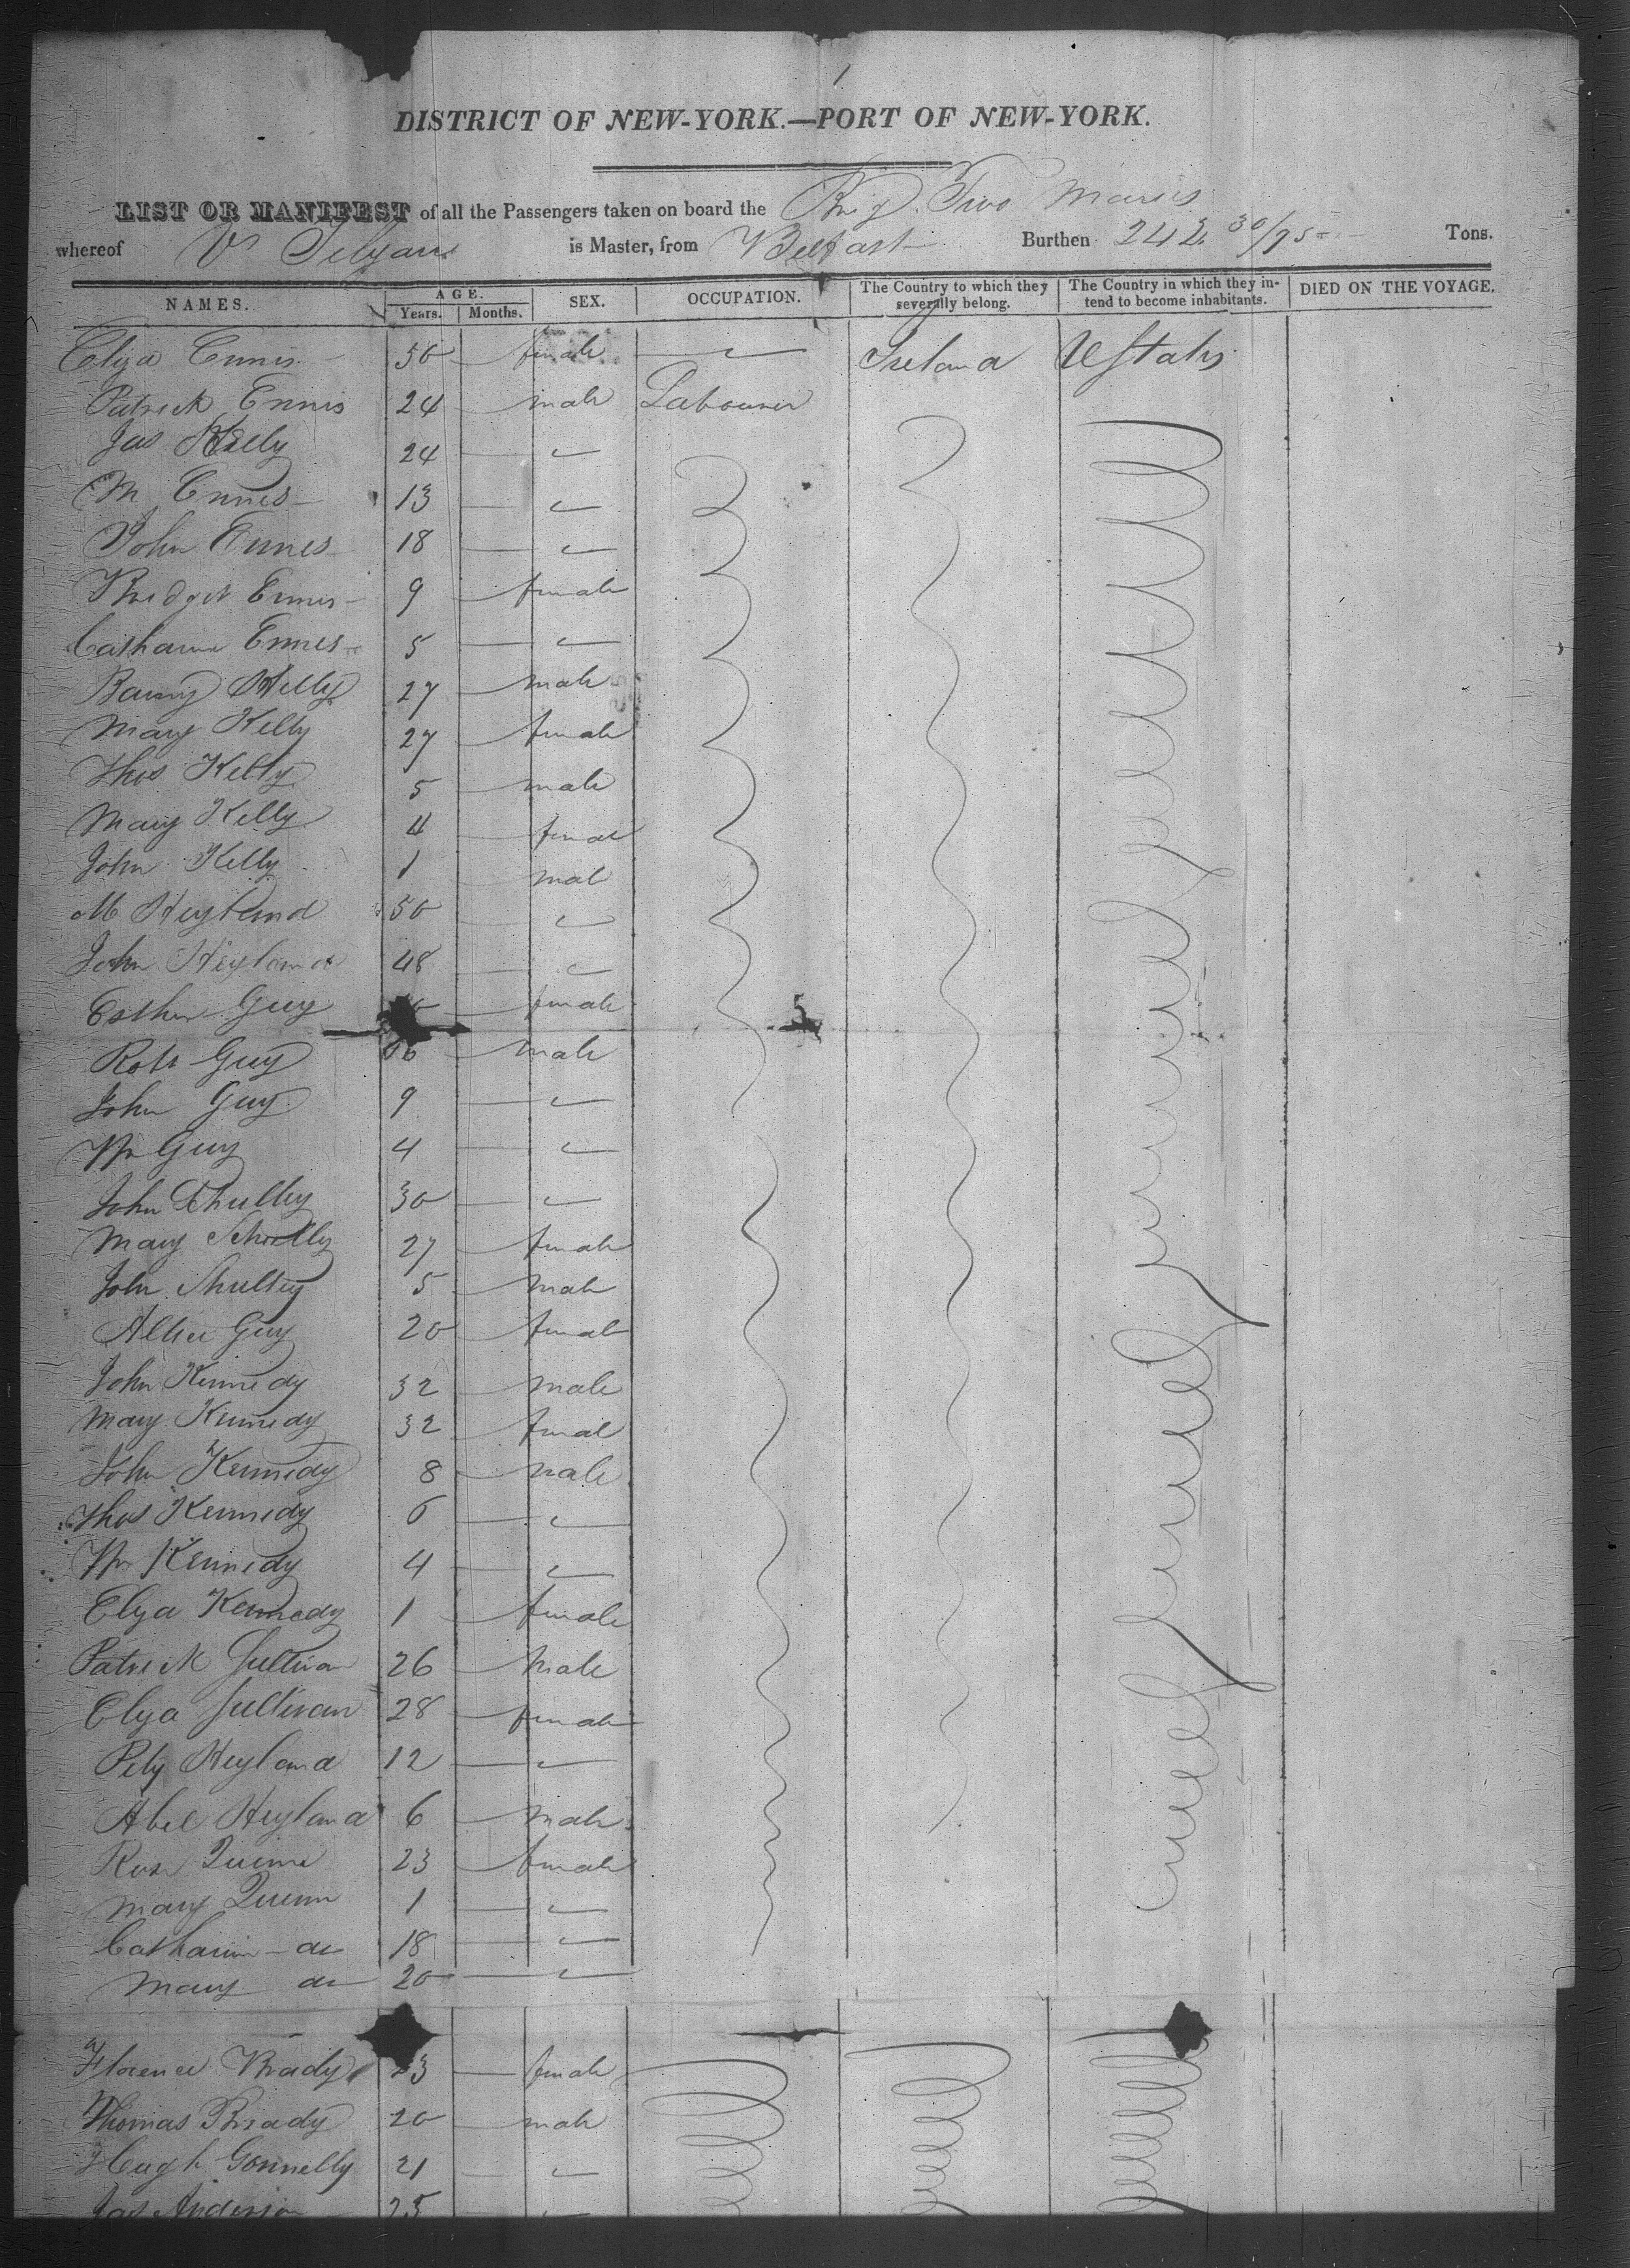 1
DISTRICT OF NEW-YORK.—PORT OF NEW-YORK.
LIST OR MANIFEST of all the Passengers taken on board the Brig Two Maries
whereof is Master, from Belfast Burthen 242 30/95 Tons.
NAMES. AGE. Years. Months. SEX. OCCUPATION. The Country to which they severally belong. The Country in which they intend to become inhabitants. DIED ON THE VOYAGE.
Eliza Ennis 50 female Ireland UStates
Patrick Ennis 24 male Labourer
Jas Kelly 24
M Ennes 13
John Ennes 18
Bridget Ennes 9 female
Catharine Ennes 5
Barny Kelly 27 male
Mary Kelly 27 female
Thos Kelly 5 male
Mary Kelly 4 female
John Kelly 1 male
M Heyland 50
John Heyland 48
Esther Guy female
5
Robt Guy male
John Guy 9
Wm Guy 4
John 30
Mary 27 female
John Shulley 5 male
Guy 20 female
John Kennedy 32 male
Mary Kennedy 32 female
John Kennedy 8 male
Thos Kennedy 6
Wm Kennedy 4
Eliza Kennedy 1 female
Patrick Sullivan 26 male
Eliza Sullivan 28 female
Heyland 12
Abel Heyland 6 male
Rose Quinn 23 female
Mary Quinn 1
Catharine do 18
Mary do 20
Florence Brady 23 female
Thomas Brady 20 male
Hugh Gonnelly 21
Jas Anderson 25